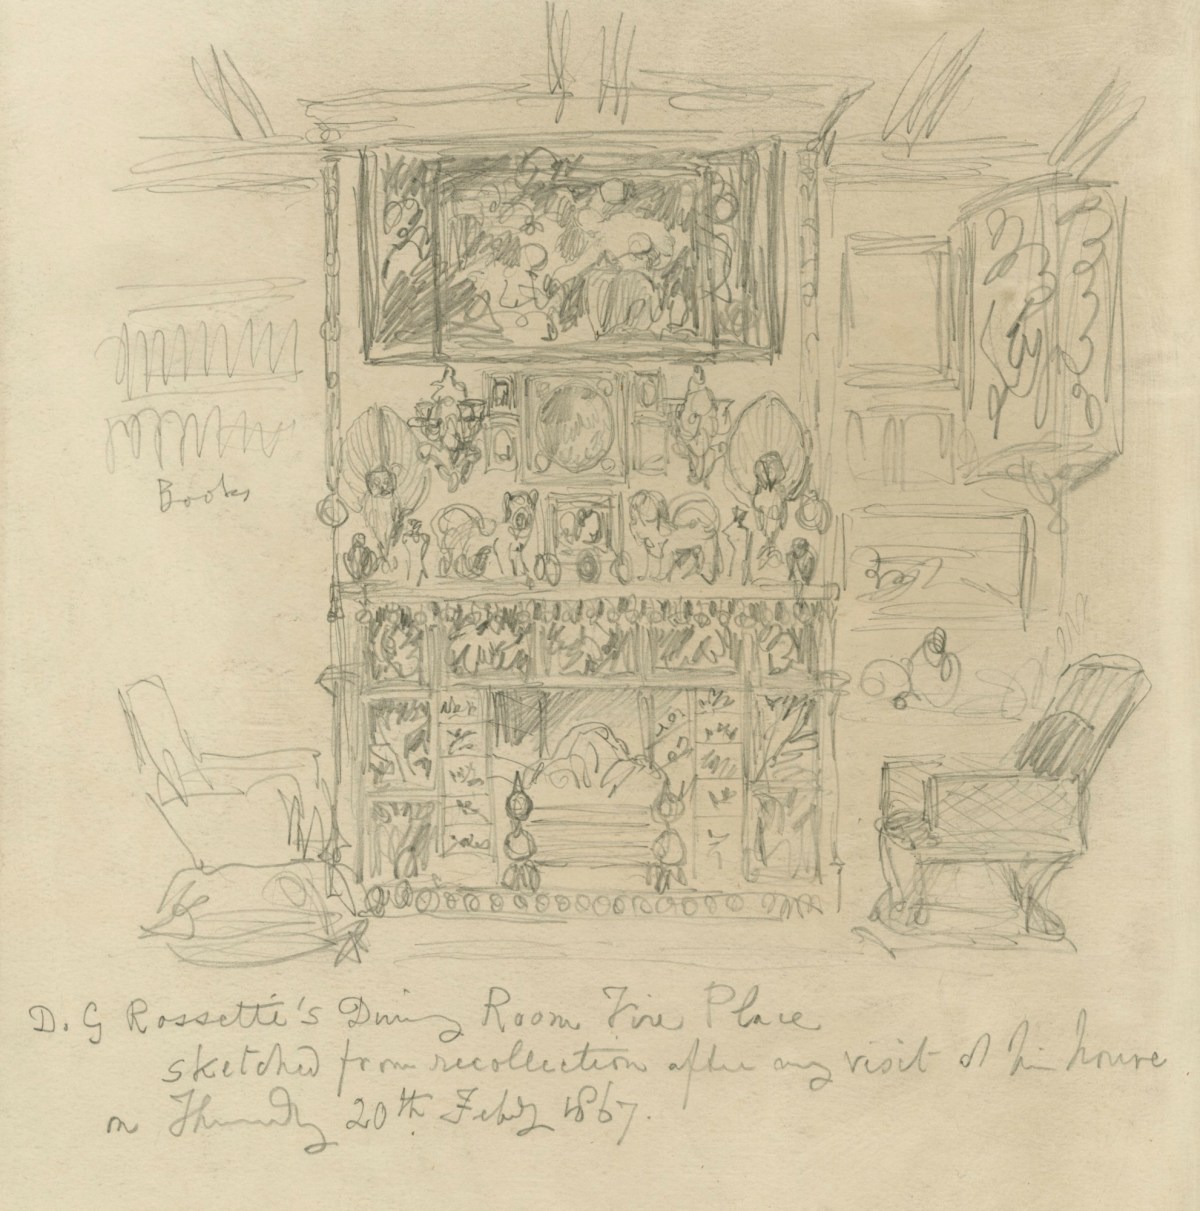 Books
D. G Rossetti's Dining Room Fire Place
sketched from recollection after my visit at his house
on Thursday 20th Feby 1867.